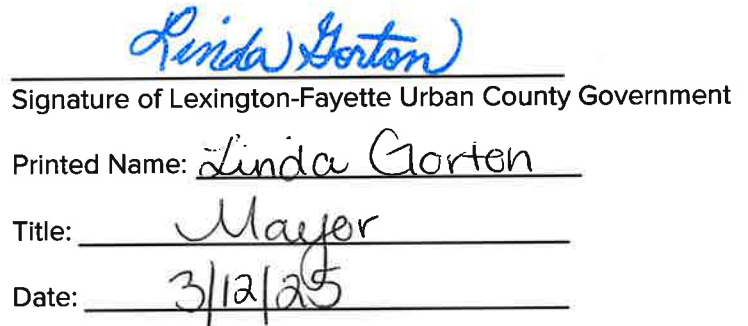 Linda Gorton
Signature of Lexington-Fayette Urban County Government
Printed Name: Linda Gorton
Title: Mayor
Date: 3/12/25